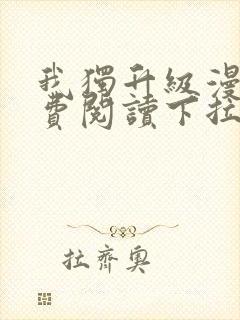 我獨升級漫
費閱讀下拉
拉齊奧